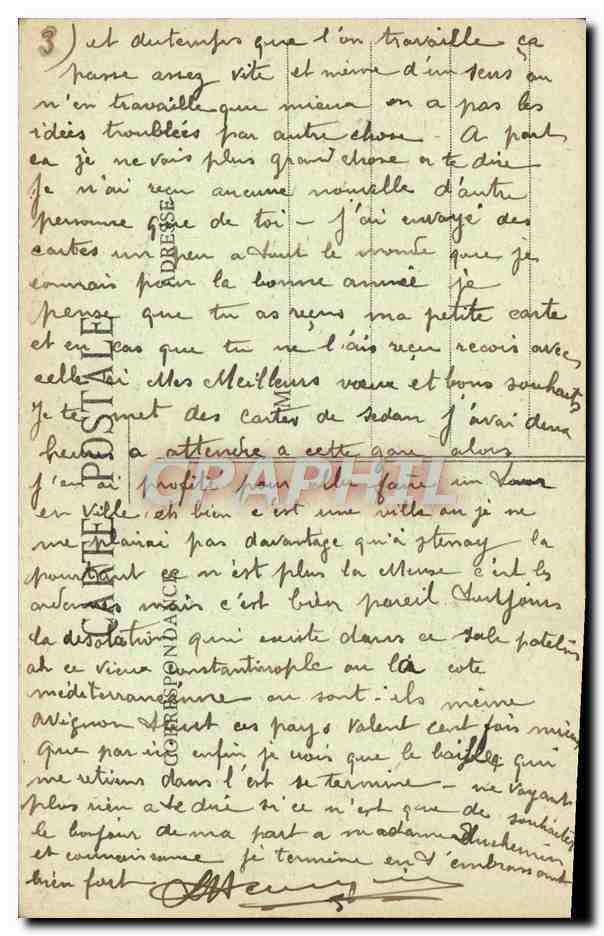 3) et dutemps que l'on travaille ça
passe assez vite et même d'un sens on
n'en travaille que mieux on a pas les
idées troublées par autre chose - A part
ca je ne vois plus grand chose a te dire
Je n'ai reçu aucune nouvelle d'autre
personne que de toi - j'ai envoyé des
cartes un peu a tout le monde que je
connais pour la bonne année je
pense que tu as reçus ma petite carte
et en cas que tu ne l'ais reçu recois avec
celle ci Mes Meilleurs vœux et bons souhaits
Je te met des cartes de Sedan j'avai deux
heures a attendre a cette gare alors
j'en ai profité pour faire un tour
en ville, eh bien c'est une ville ou je ne
me plairai pas davantage qu'à Stenay la
pourtant ce n'est plus la Meuse c'est les
ardennes mais c'est bien pareil toutjours
la desolation qui existe dans ce sale patelin
ah ce vieux constantinople ou la cote
méditerranéenne ou sont-ils même
avignon tout ces pays valent cent fois mieux
que par ici enfin je crois que le qui
me retiens dans l'est se termine - ne voyant
plus rien a te dire si ce n'est que de souhaiter
le bonjour de ma part a madame Duchemin
et connaissance je termine en t'embrassant
bien fort
CARTE POSTALE
CORRESPONDANCE
ADRESSE
M
CPAPHIL